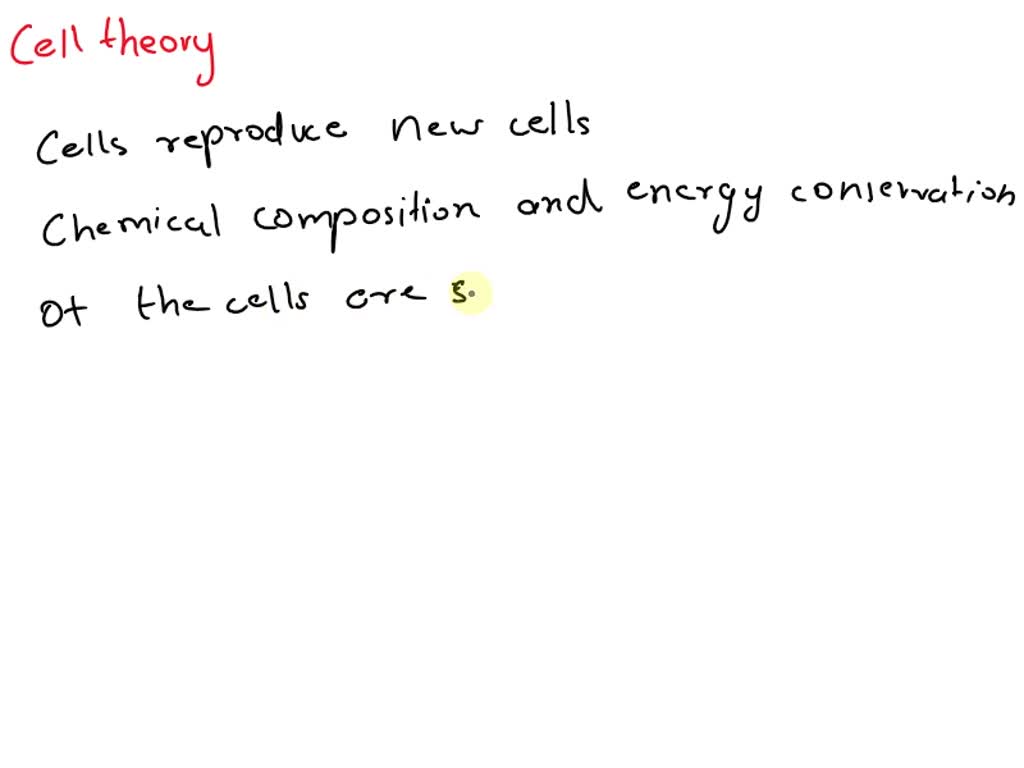 Cell theory
Cells reproduce new cells
Chemical composition and energy conservation
of the cells are s